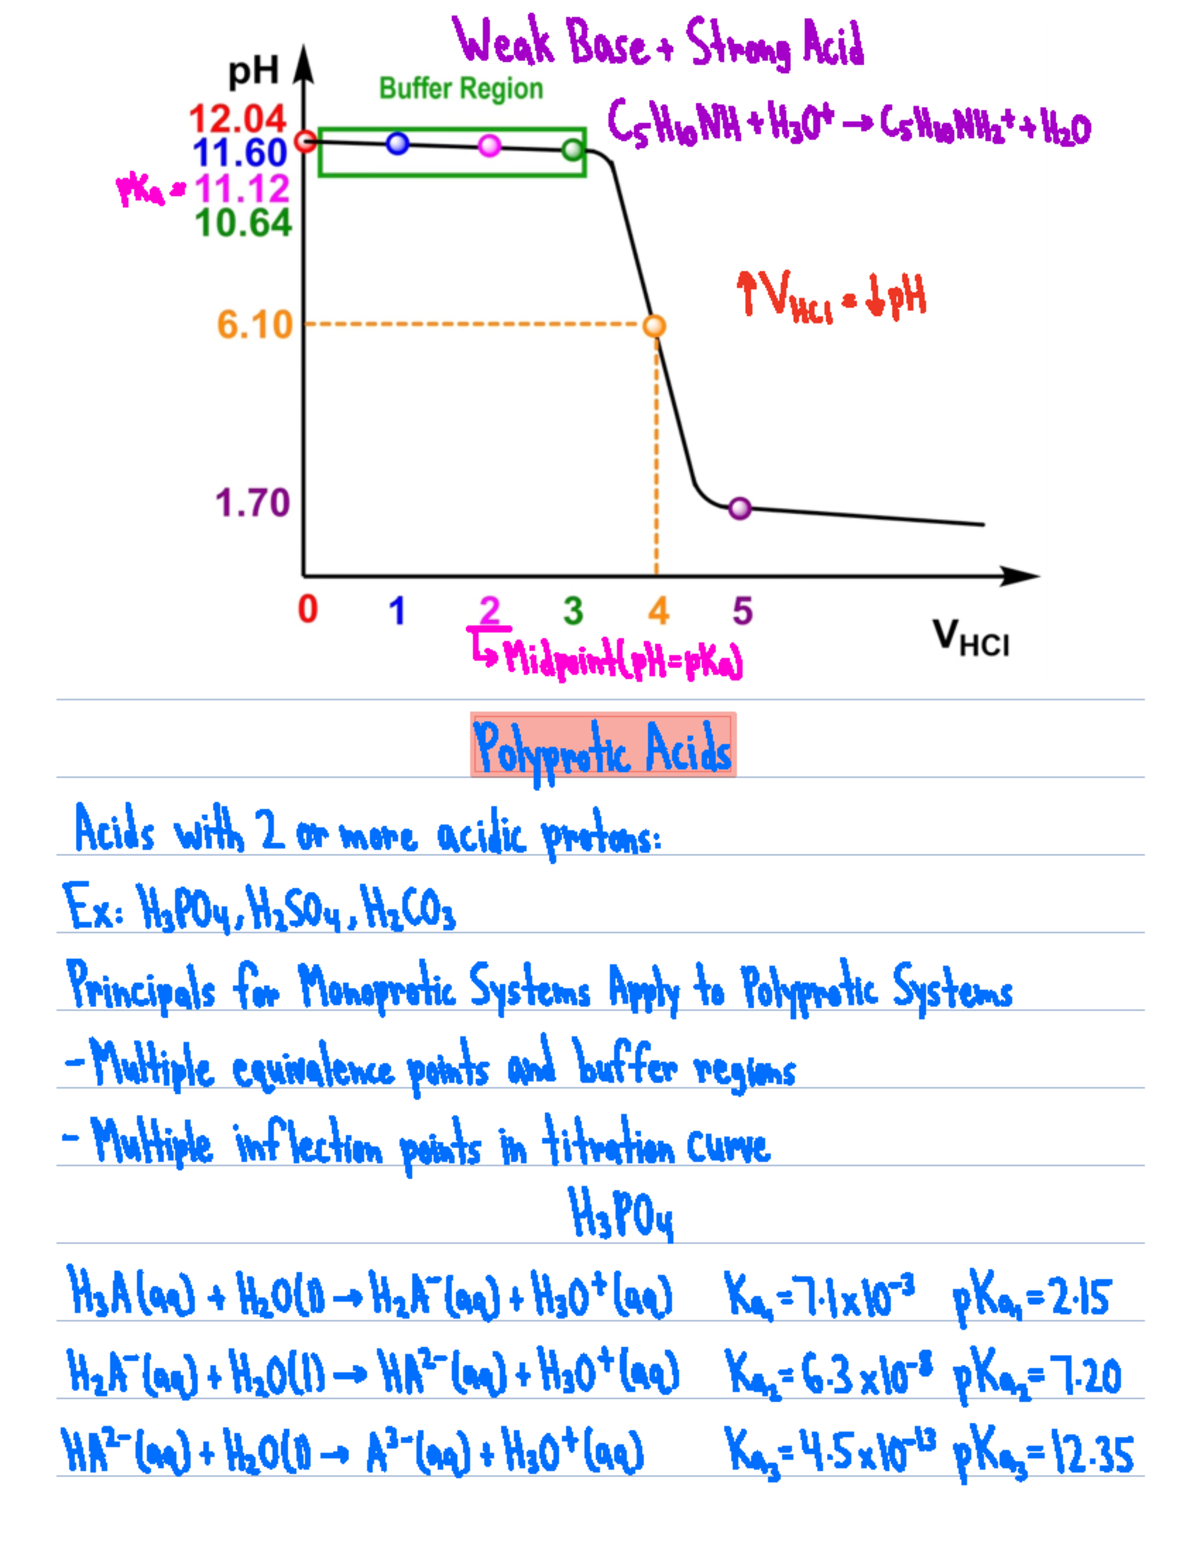 Weak Base + Strong Acid
pH
Buffer Region
12.04
C₅H₁₀NH + H₃O⁺ → C₅H₁₀NH₂⁺ + H₂O
11.60
pKa = 11.12
10.64
↑V_HCl = ↓pH
6.10
1.70
0 1 2 3 4 5
V_HCl
↳ Midpoint (pH = pKa)
Polyprotic Acids
Acids with 2 or more acidic protons:
Ex: H₃PO₄, H₂SO₄, H₂CO₃
Principals for Monoprotic Systems Apply to Polyprotic Systems
- Multiple equivalence points and buffer regions
- Multiple inflection points in titration curve
H₃PO₄
H₃A(aq) + H₂O(l) → H₂A⁻(aq) + H₃O⁺(aq) Ka₁ = 7.1x10⁻³ pKa₁ = 2.15
H₂A⁻(aq) + H₂O(l) → HA²⁻(aq) + H₃O⁺(aq) Ka₂ = 6.3x10⁻⁸ pKa₂ = 7.20
HA²⁻(aq) + H₂O(l) → A³⁻(aq) + H₃O⁺(aq) Ka₃ = 4.5x10⁻¹³ pKa₃ = 12.35